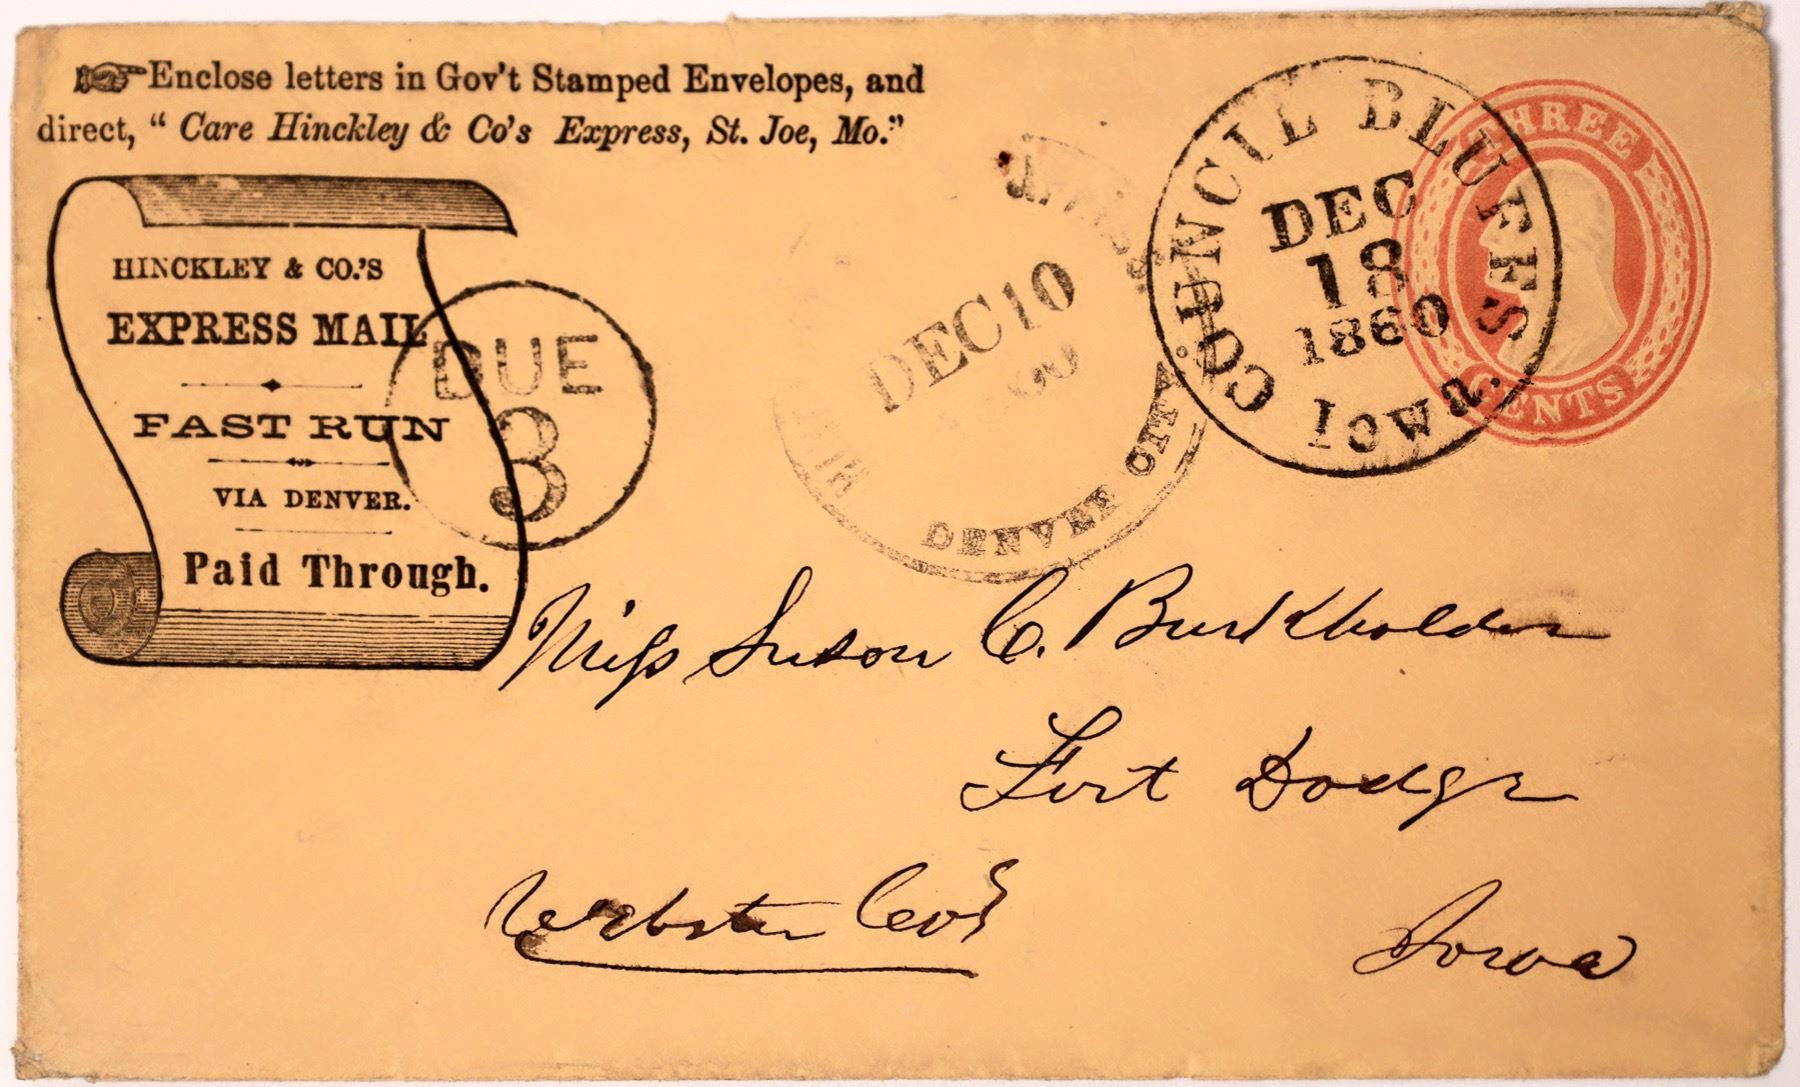 Enclose letters in Gov't Stamped Envelopes, and
direct, “ Care Hinckley & Co's Express, St. Joe, Mo.”
HINCKLEY & CO.'S
EXPRESS MAIL
FAST RUN
VIA DENVER.
Paid Through.
DUE
3
DEC 10
DENVER CITY
COUNCIL BLUFFS
DEC
18
1860
Iowa.
THREE
CENTS
Miss Susan C. Burkholder
Fort Dodge
Webster Coy
Iowa